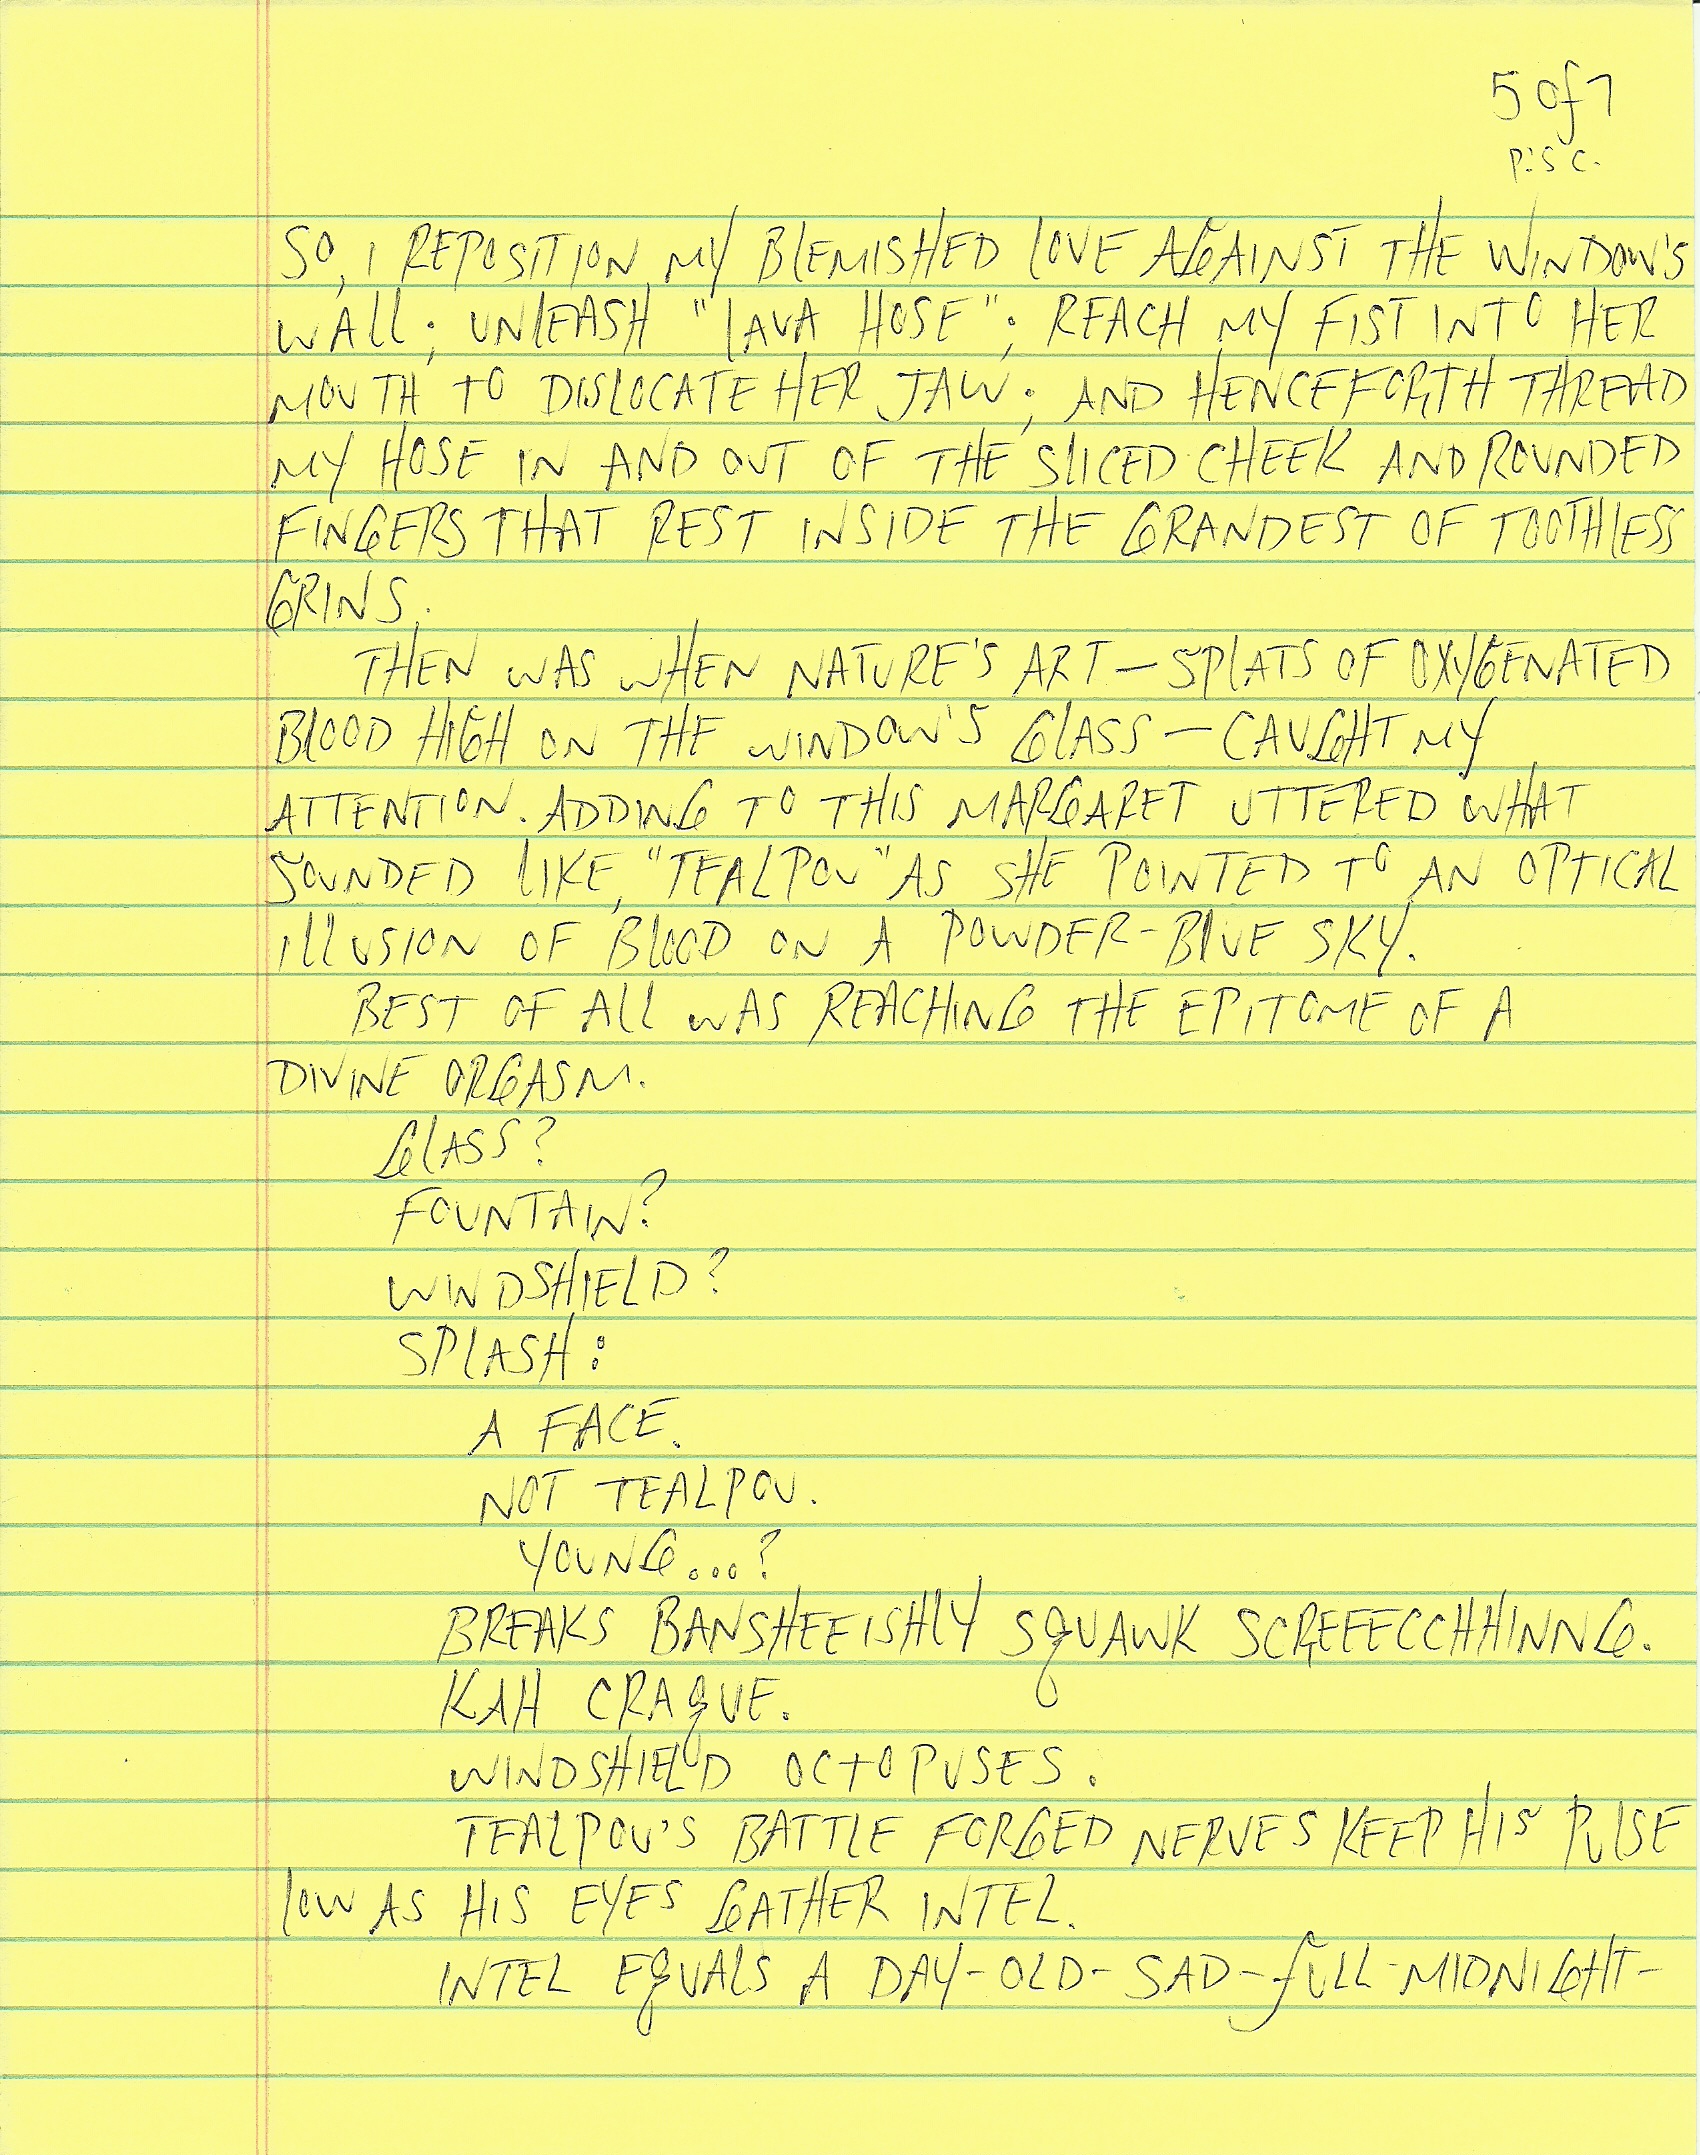 5 of 7
P.S.C.
SO, I REPOSITION MY BLEMISHED LOVE AGAINST THE WINDOW'S
WALL; UNLEASH "LAVA HOSE"; REACH MY FIST INTO HER
MOUTH TO DISLOCATE HER JAW; AND HENCEFORTH THREAD
MY HOSE IN AND OUT OF THE SLICED CHEEK AND ROUNDED
FINGERS THAT REST INSIDE THE GRANDEST OF TOOTHLESS
GRINS.
THEN WAS WHEN NATURE'S ART — SPLATS OF OXYGENATED
BLOOD HIGH ON THE WINDOW'S GLASS — CAUGHT MY
ATTENTION. ADDING TO THIS MARGARET UTTERED WHAT
SOUNDED LIKE, "TEALPOV" AS SHE POINTED TO AN OPTICAL
ILLUSION OF BLOOD ON A POWDER-BLUE SKY.
BEST OF ALL WAS REACHING THE EPITOME OF A
DIVINE ORGASM.
GLASS?
FOUNTAIN?
WINDSHIELD?
SPLASH:
A FACE.
NOT TEALPOV.
YOUNG...?
BREAKS BANSHEEISHLY SQUAWK SCREEECCHHINNG.
KAH CRAQUE.
WINDSHIELD OCTOPUSES.
TEALPOV'S BATTLE FORGED NERVES KEEP HIS PULSE
LOW AS HIS EYES GATHER INTEL.
INTEL EQUALS A DAY-OLD-SAD-FULL-MIDNIGHT-